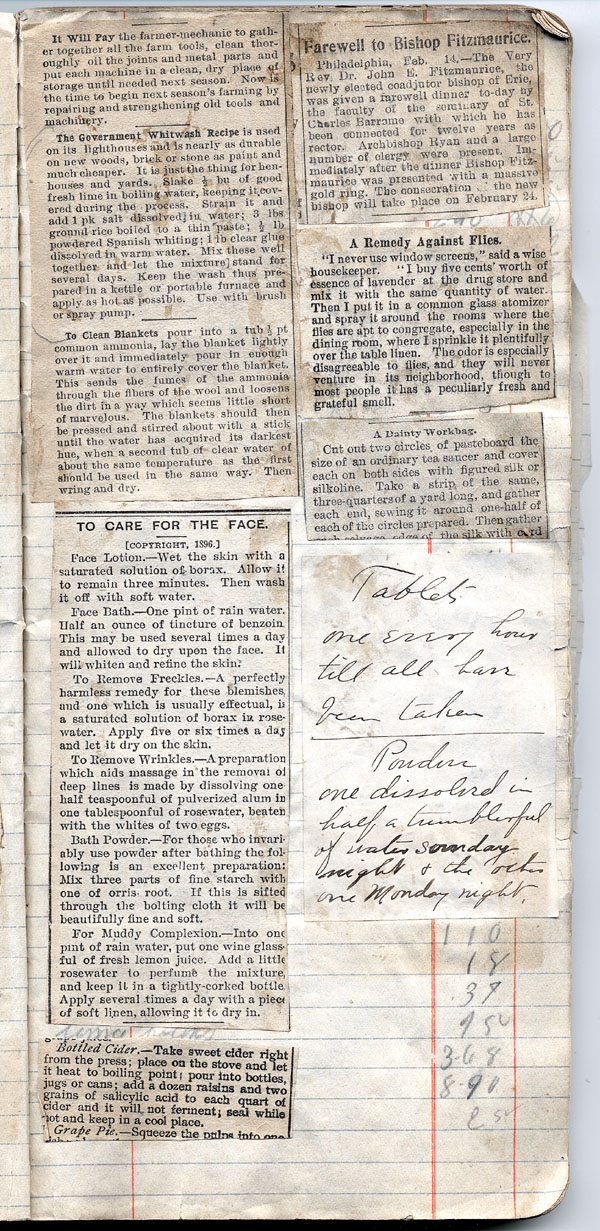 It Will Pay the farmer-mechanic to gath-
er together all the farm tools, clean thor-
oughly oil the joints and metal parts and
put each machine in a clean, dry place of
storage until needed next season. Now is
the time to begin next season's farming by
repairing and strengthening old tools and
machinery.
The Government Whitwash Recipe is used
on its lighthouses and is nearly as durable
on new woods, brick or stone as paint and
much cheaper. It is just the thing for hen-
houses and yards. Slake ½ bu of good
fresh lime in boiling water, keeping it cov-
ered during the process. Strain it and
add 1 pk salt dissolved in water; 3 lbs
ground rice boiled to a thin paste; ½ lb
powdered Spanish whiting; 1 lb clear glue
dissolved in warm water. Mix these well
together and let the mixture stand for
several days. Keep the wash thus pre-
pared in a kettle or portable furnace and
apply as hot as possible. Use with brush
or spray pump.
To Clean Blankets pour into a tub ½ pt
common ammonia, lay the blanket lightly
over it and immediately pour in enough
warm water to entirely cover the blanket.
This sends the fumes of the ammonia
through the fibers of the wool and loosens
the dirt in a way which seems little short
of marvelous. The blankets should then
be pressed and stirred about with a stick
until the water has acquired its darkest
hue, when a second tub of clear water of
about the same temperature as the first
should be used in the same way. Then
wring and dry.
TO CARE FOR THE FACE.
[COPYRIGHT, 1896.]
Face Lotion.—Wet the skin with a
saturated solution of borax. Allow it
to remain three minutes. Then wash
it off with soft water.
Face Bath.—One pint of rain water.
Half an ounce of tincture of benzoin.
This may be used several times a day
and allowed to dry upon the face. It
will whiten and refine the skin.
To Remove Freckles.—A perfectly
harmless remedy for these blemishes,
and one which is usually effectual, is
a saturated solution of borax in rose-
water. Apply five or six times a day
and let it dry on the skin.
To Remove Wrinkles.—A preparation
which aids massage in the removal of
deep lines is made by dissolving one
half teaspoonful of pulverized alum in
one tablespoonful of rosewater, beaten
with the whites of two eggs.
Bath Powder.—For those who invari-
ably use powder after bathing the fol-
lowing is an excellent preparation:
Mix three parts of fine starch with
one of orris root. If this is sifted
through the bolting cloth it will be
beautifully fine and soft.
For Muddy Complexion.—Into one
pint of rain water, put one wine glass-
ful of fresh lemon juice. Add a little
rosewater to perfume the mixture,
and keep it in a tightly-corked bottle.
Apply several times a day with a piece
of soft linen, allowing it to dry in.
Bottled Cider.—Take sweet cider right
from the press; place on the stove and let
it heat to boiling point; pour into bottles,
jugs or cans; add a dozen raisins and two
grains of salicylic acid to each quart of
cider and it will not ferment; seal while
hot and keep in a cool place.
Grape Pie.—Squeeze the pulps into one
Farewell to Bishop Fitzmaurice.
Philadelphia, Feb. 14.—The Very
Rev. Dr. John E. Fitzmaurice, the
newly elected coadjutor bishop of Erie,
was given a farewell dinner to-day by
the faculty of the seminary of St.
Charles Barrome with which he has
been connected for twelve years as
rector. Archbishop Ryan and a large
number of clergy were present. Im-
mediately after the dinner Bishop Fitz-
maurice was presented with a massive
gold ring. The consecration the new
bishop will take place on February 24.
A Remedy Against Flies.
"I never use window screens," said a wise
housekeeper. "I buy five cents' worth of
essence of lavender at the drug store and
mix it with the same quantity of water.
Then I put it in a common glass atomizer
and spray it around the rooms where the
flies are apt to congregate, especially in the
dining room, where I sprinkle it plentifully
over the table linen. The odor is especially
disagreeable to flies, and they will never
venture in its neighborhood, though to
most people it has a peculiarly fresh and
grateful smell.
A Dainty Workbag.
Cut out two circles of pasteboard the
size of an ordinary tea saucer and cover
each on both sides with figured silk or
silkoline. Take a strip of the same,
three-quarters of a yard long, and gather
each end, sewing it around one-half of
each of the circles prepared. Then gather
each selvage edge of the silk with cord
Tablets
one every hour
till all have
been taken
Powders
one dissolved in
half a tumblerful
of water sunday
night & the other
one Monday night.
110
18
37
9 50
3.68
8.90